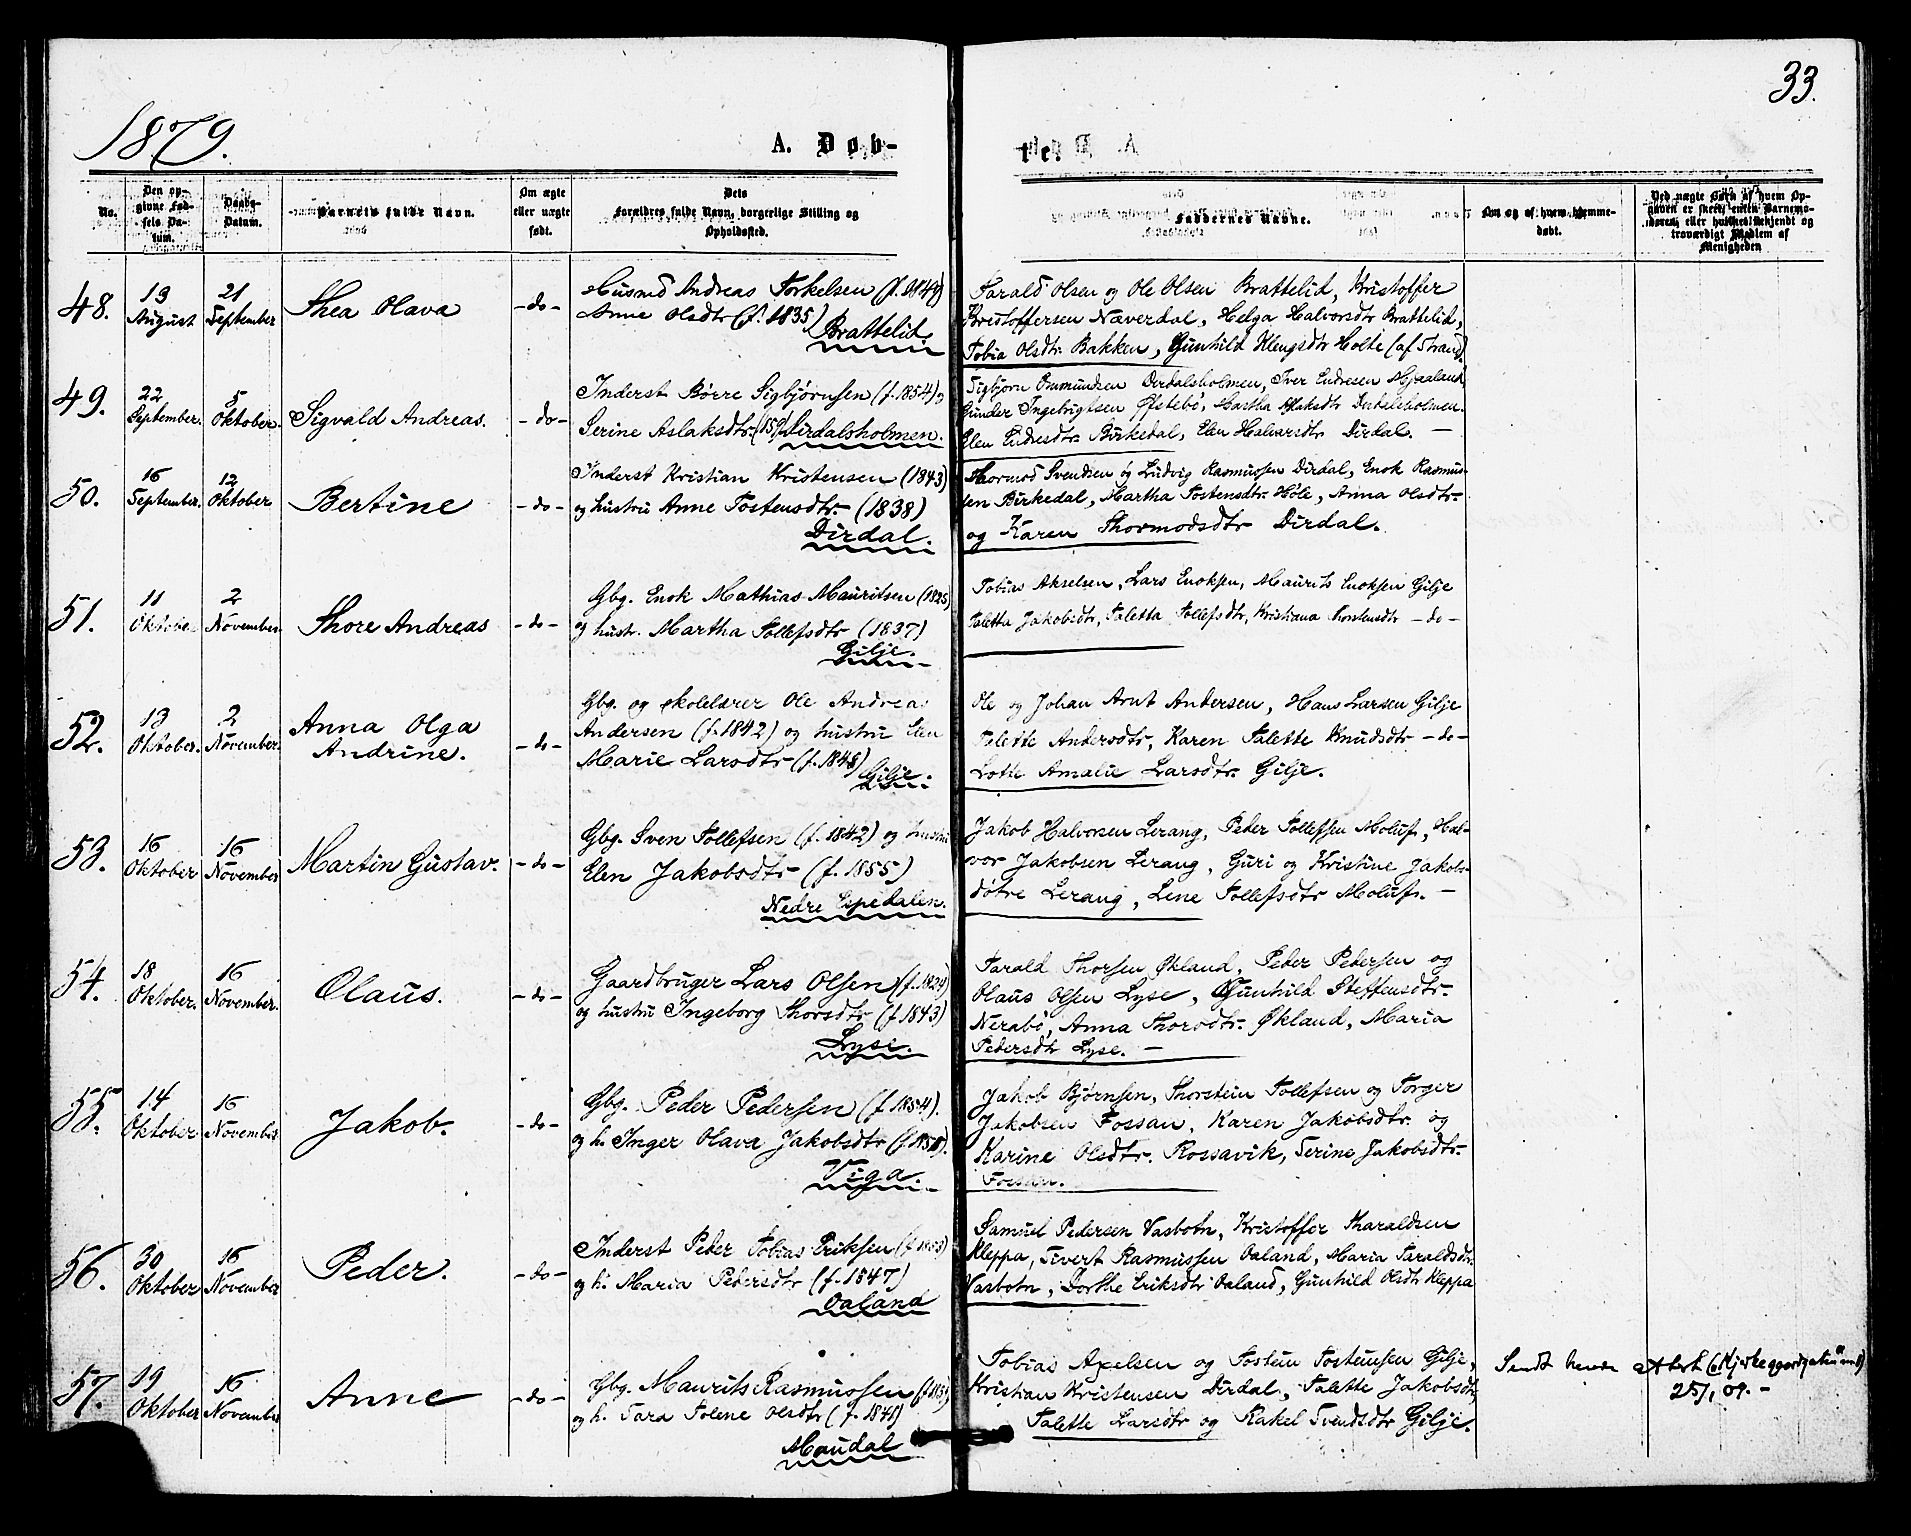 33.
1879.
A. Døb-
te.
No.
Den op-
givne Fød-
sels Da-
tum.
Daabs-
Datum.
Barnets fulde Navn.
Om ægte
eller uægte
født.
Dets
Forældres fulde Navn, borgerlige Stilling og
Opholdssted.
Faddernes Navne.
Om og af hvem hjemme-
døbt.
Ved uægte Børn af hvem Op-
gaven er skeet, enten Barnemo-
deren, eller hvilket bekjendt og
troværdigt Medlem af
Menigheden
48.
19 August
21 September
Thea Olava
-do-
Husmd Andreas Torkelsen
Anne Olsdtr (f. 1835)
Brattelid.
Tarald Olsen og Ole Olsen Brattelid, Kristoffer
Kristoffersen Næverdal, Helga Halvorsdtr Brattelid,
Tobia Olsdtr. Bakken, Gunhild Klengsdtr Holte (af Strand).
49.
22 September.
5 Oktober.
Sigvald Andreas.
-do-
Inderst Børre Sigbjørnsen (f. 1854) og
Serine Aslaksdtr. Dirdalsholmen.
Sigbjørn Ommundsen Dirdalsholmen, Iver Endresen Mjaaland
Gunder Ingebrigtsen Øfstebø, Martha Aslaksdtr Dirdalsholmen.
Elen Endresdtr. Birkedal, Elen Halvorsdtr Dirdal. —
50.
16 September.
12 Oktober
Bertine
-do-
Inderst Kristian Kristensen (1843)
og hustru Anne Tostensdtr. (1838)
Dirdal.
Thormod Svendsen og Ludvig Rasmussen Dirdal, Enok Rasmus-
sen Birkedal, Martha Tostensdtr. Høle, Anna Olsdtr-
og Karen Thormodsdtr Dirdal.
51.
11 Oktober
2 November.
Thore Andreas
-do-
Gbg. Enok Mathias Mauritsen (1825)
og hustr. Martha Tollefsdtr (1837)
Gilje.
Tobias Akselsen, Lars Enoksen, Maurits Enoksen Gilje
Taletta Jakobsdtr, Taletta Tollefsdtr, Kristiana Thorstensdtr -do-
52.
13 Oktober.
2 November.
Anna Olga
Andrine.
-do-
Gbg. og skolelærer Ole Andreas
Andersen (f. 1842) og hustru Elen
Marie Larsdtr (f. 1848)
Gilje.
Ole og Johan Arnt Andersen, Hans Larsen Gilje
Talette Andersdtr, Karen Talette Knudsdtr -do-
Lotte Amalie Larsdtr. Gilje.
53.
16 Oktober
16 November
Martin Gustav.
-do-
Gbg. Sven Tollefsen (f. 1842) og hustru
Elen Jakobsdtr (f. 1855)
Nedre Espedalen.
Jakob Halvorsen Lerang, Peder Tollefsen Moluf, Hal-
vor Jakobsen Lerang, Guri og Kristine Jakobs-
døtre Lerang, Lene Tollefsdtr Moluf. —
54.
18 Oktober.
16 November.
Olaus.
-do-
Gaardbruger Lars Olsen (f. 1829)
og hustru Ingeborg Thorsdtr (f 1843)
Lyse.
Tarald Thorsen Økland, Peder Pedersen og
Olaus Olsen Lyse, Gunhild Steffensdtr.
Nerabø, Anna Thorsdtr. Økland, Maria
Pedersdtr Lyse. —
55.
14 Oktober
16 November
Jakob.
-do-
Gbg. Peder Pedersen (f. 1854).
og h. Inger Olava Jakobsdtr
Viga.
Jakob Bjørnsen, Thorstein Tollefsen og Torger
Jakobsen Fossan, Karen Jakobsdtr. og
Karine Olsdtr. Rossavik, Serine Jakobsdtr-
Fossan.
56.
30 Oktober
16 November
Peder.
-do-
Inderst Peder Tobias Eriksen
og h. Maria Pedersdtr (f. 1847)
Oaland
Samuel Pedersen Vasbotn, Kristoffer Tharaldsen
Kleppa, Sivert Rasmussen Oaland, Maria Taraldsdtr.
Vasbotn, Dorthe Eriksdtr Oaland, Gunhild Olsdtr Kleppa
57.
19 Oktober
16 November
Anne
-do-
Gbg. Maurits Rasmussen
og h. Sara Tolene Olsdtr (f. 1841)
Maudal
Tobias Axelsen og Tostein Tosteinsen Gilje,
Kristian Kristensen Dirdal, Talette Jakobsdtr,
Talette Larsdtr og Rakel Svendsdtr Gilje.
Sendt hende Attest
25/1 09. —